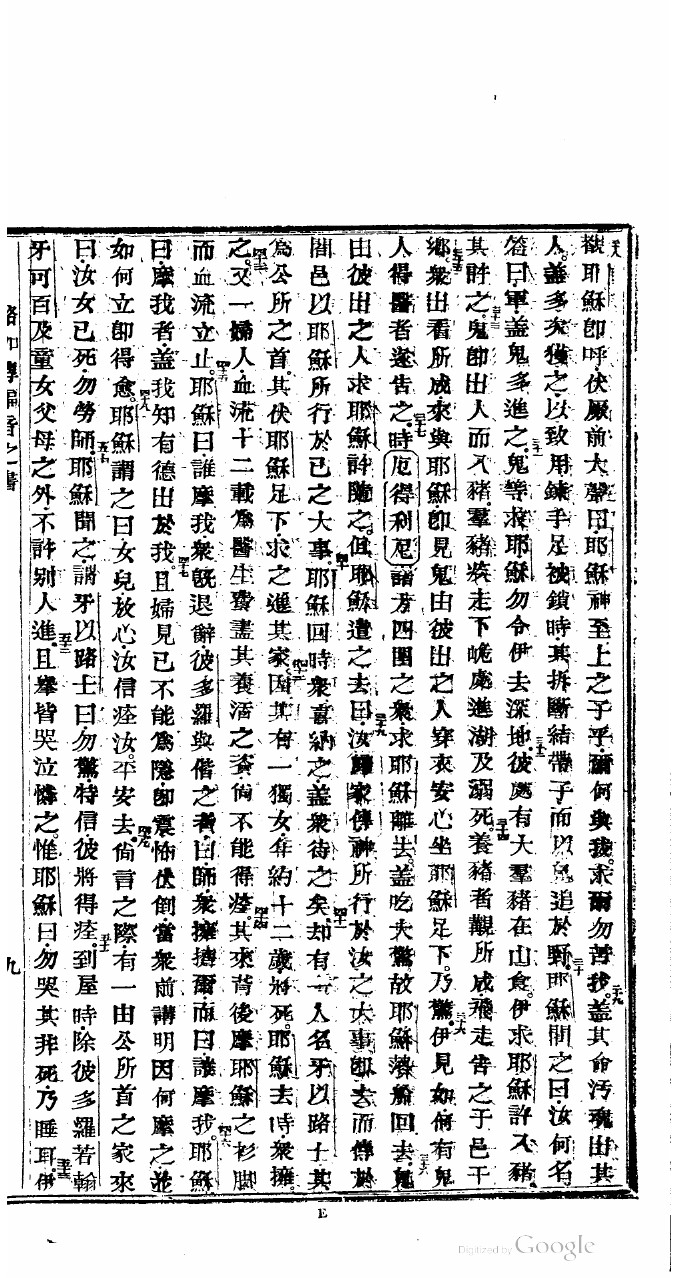 獄耶穌卽呼伏厥前大聲曰耶穌神至上之子乎爾何與我求爾勿苦我蓋其命汚魂出其
人蓋多次獲之以致用鍊手足被鎖時其拆斷結帶子而以鬼追於野耶穌問之曰汝何名
答曰軍蓋鬼多進之鬼等求耶穌勿令伊去深地彼處有大羣豬在山食伊求耶穌許入豬
其許之鬼卽出人而入豬羣豬奔走下嶢處進湖及溺死養豬者觀所成飛走告之于邑于
鄉衆出看所成來與耶穌卽見鬼由彼出之人穿衣安心坐耶穌足下乃驚伊見如何有鬼
人得醫者遂告之時厄得利尼諸方四圍之衆求耶穌離去蓋吃大驚故耶穌落船回去鬼
由彼出之人求耶穌許隨之但耶穌遣之去曰汝歸家傳神所行於汝之大事卽去而傳於
闔邑以耶穌所行於已之大事耶穌回時衆喜納之蓋衆待之矣却有一人名牙以路士其
爲公所之首其伏耶穌足下求之進其家因其有一獨女年約十二歲將死耶穌去時衆擁
之又一婦人血流十二載爲醫生費盡其養活之資尙不能得痊其來背後摩耶穌之衫脚
而血流立止耶穌曰誰摩我衆旣退辭彼多羅與偕之者曰師衆擁擠爾而曰誰摩我耶穌
曰摩我者蓋我知有德出於我且婦見已不能爲隱卽震怖伏倒當衆前講明因何摩之並
如何立卽得愈耶穌謂之曰女兒放心汝信痊汝平安去尙言之際有一由公所首之家來
曰汝女已死勿勞師耶穌聞之謂牙以路士曰勿驚特信彼將得痊到屋時除彼多羅若翰
牙可百及童女父母之外不許别人進且舉皆哭泣憐之惟耶穌曰勿哭其非死乃睡耳伊
路加傳福音之書
九
E
Digitized by Google